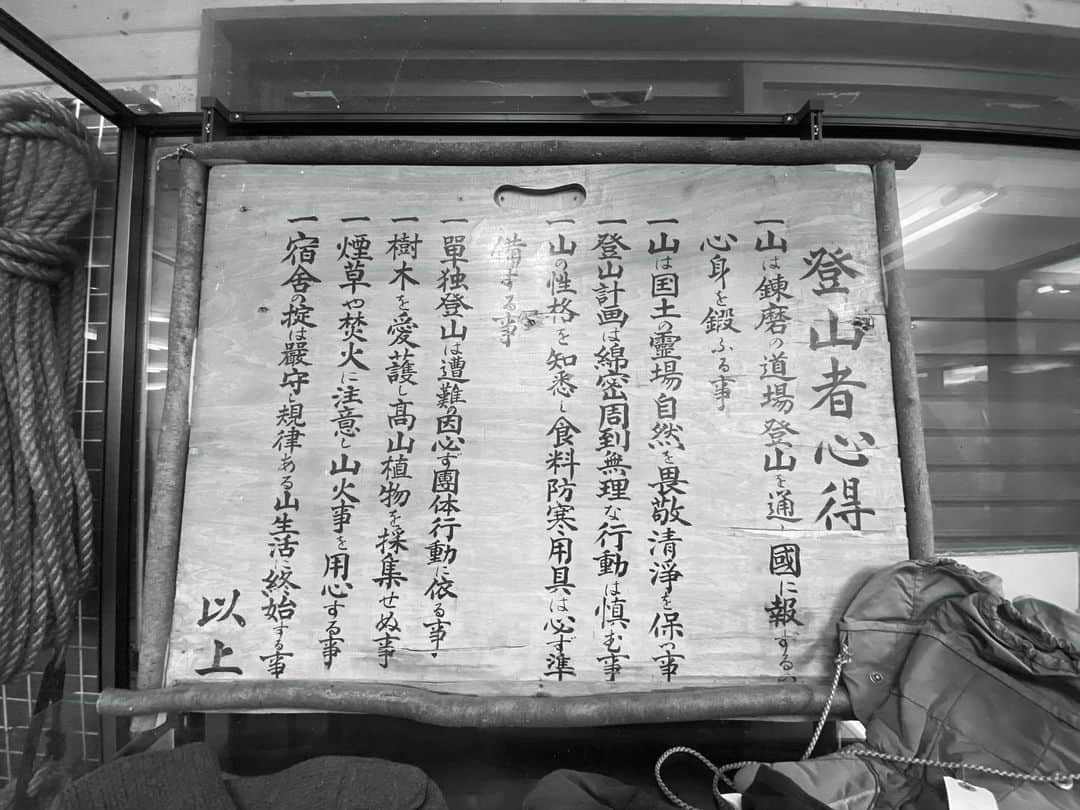 登山者心得
一山は錬磨の道場登山を通し國に報する
心身を鍛ふる事
一山は国土の靈場自然を畏敬清淨を保つ事
一登山計画は綿密周到無理な行動は慎む事
一山の性格を知悉し食料防寒用具は必ず準
備する事
一單独登山は遭難の因必ず團体行動に依る事
一樹木を愛護し高山植物を採集せぬ事
一煙草や焚火に注意し山火事を用心する事
一宿舎の掟は嚴守し規律ある山生活に終始する事
以上